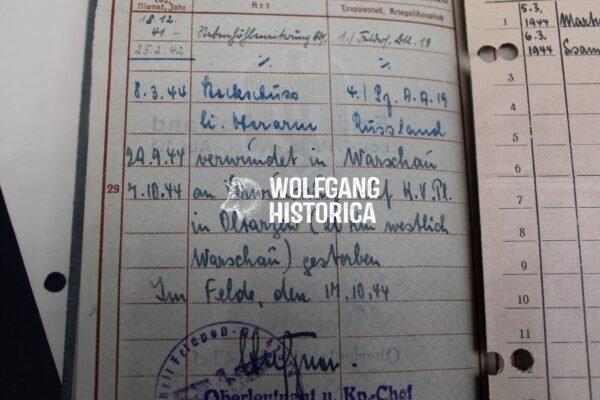 Tag, Monat, Jahr
Art
Truppenteil, Kriegsschauplatz
18.12.
41 –
25.2.42
1./ Felders. Btl. 19
8.3.44 Steckschuss 4./ Pz. A. A. 19
li. Oberarm Russland
29.9.44 verwundet in Warschau
29
7.10.44 an auf H.V.Pl.
in Oltarzew (20 km westlich
Warschau) gestorben
Im Felde, den 17.10.44
WOLFGANG
HISTORICA
Oberleutnant u. Kp.-Chef
1 5.3. 1944
2 6.3. 1944
3
4
5
6
7
8
9
10
11
12